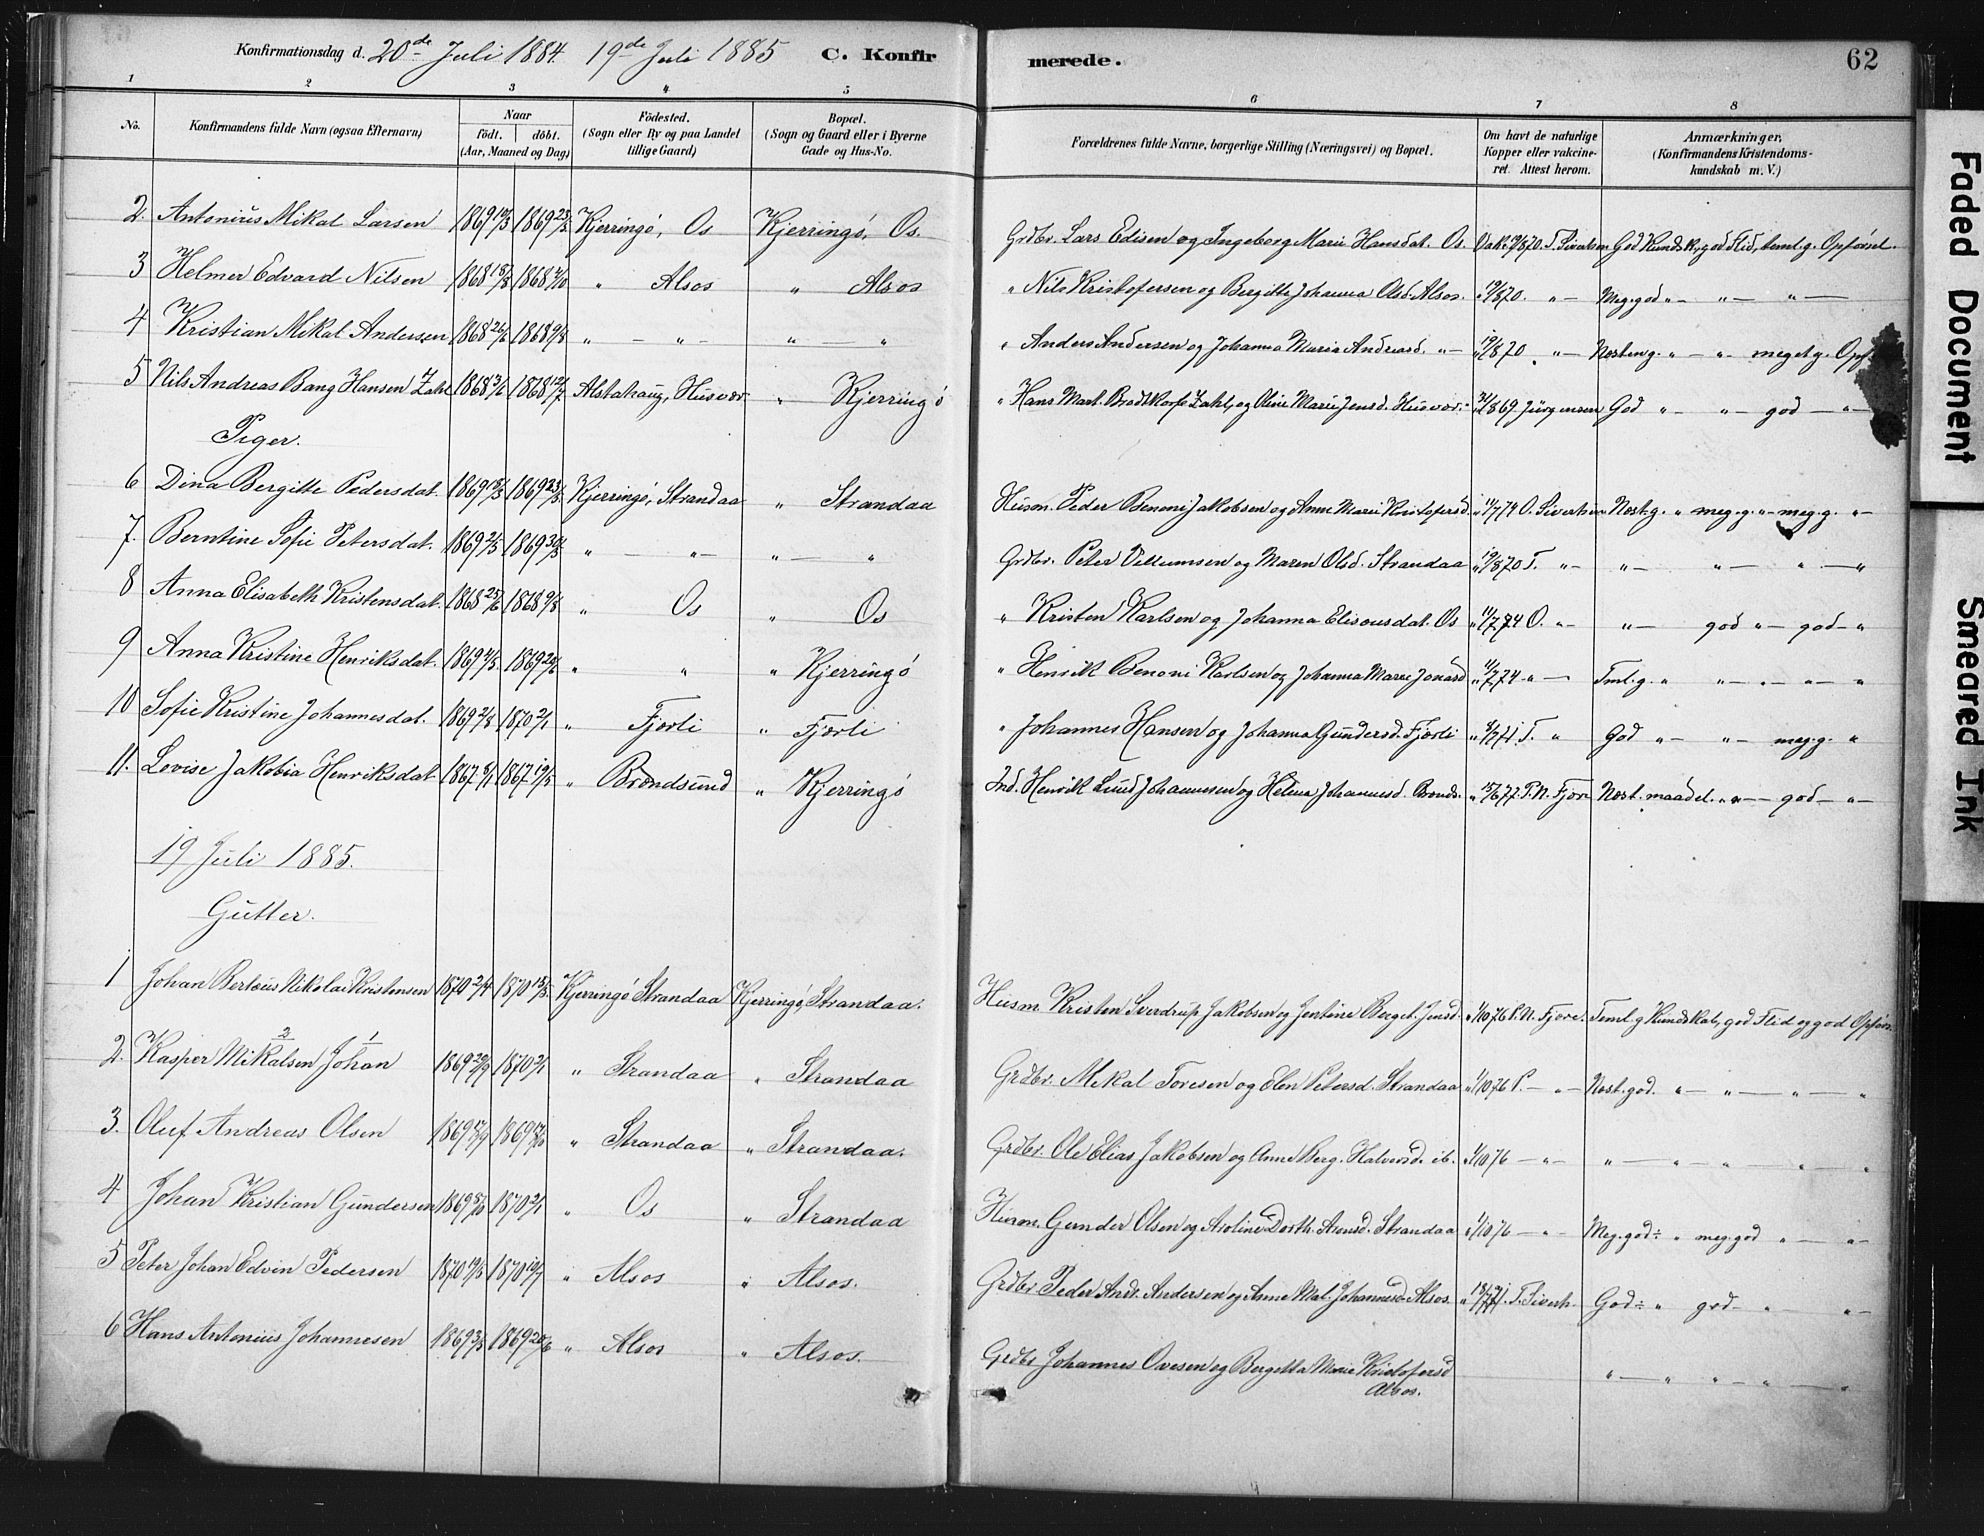 Konfirmationsdag d. 20de Juli 1884. 19de Juli 1885 C. Konfirmerede. 62
1 2 3 4 5 6 7 8
No. Konfirmandens fulde Navn (ogsaa Efternavn) Naar födt. döbt. (Aar, Maaned og Dag) Födested. (Sogn eller By og paa Landet tillige Gaard) Bopæl. (Sogn og Gaard eller i Byerne Gade og Hus-No. Forældrenes fulde Navne, borgerlige Stilling (Næringsvei) og Bopæl. Om havt de naturlige Kopper eller vakcineret. Attest herom. Anmærkninger. (Konfirmandens Kristendomskundskab m. V.)
2. Antonius Mikal Larsen 1869 1869 23/5 Kjerringö, Os Kjerringö, Os Grdbr. Lars Edisen og Ingeborg Marie Hansdat. Os Vak. 19/8 70. T. Sivertsen God Kundsk., god Flid, teml. g. Opförsel
3 Helmer Edvard Nilsen 1868 15/8 1868 4/10 " Alsos " Alsos " Nils Kristofersen og Bergitte Johanna Olsd. Alsos. " 19/8 70. " — Meg. god " — " — " —
4 Kristian Mikal Andersen 1868 26/6 1868 9/8 " — " — " — " " Anders Andersen og Johanna Maria Andreasd. " — " 19/8 70 " — Nosten g. " — " — meget g. Opf.
5 Nils Andreas Bang Hansen Zahl 1868 3/6 1868 12/7 Alstahaug, Husvær " Kjerringö " Hans Mart. Bradtkorf Zahl, og Oline Marie Jensd. Husvær. 869 Jürgensen God " — " — god — " —
Piger.
6 Dina Bergitte Pedersdat. 1869 18/3 1869 23/5 Kjerringö, Strandaa " Strandaa Husm. Peder Benoni Jakobsen og Anne Marie Kristofersd. " 11/7 74 O. Sivertsen Nost. g. " meg. g. " — meg. g. " —
7. Berntine Sofie Petersdat. 1869 21/3 1869 30/5 " — " — " — " Grdbr. Peter Villumsen og Maren Olsd. Strandaa " 19/8 70 T. " — " — " — " — "
8 Anna Elisabeth Kristensdat. 1868 25/6 1868 9/8 " Os " Os " Kristen Karlsen og Johanna Eliseusdat. Os " 11/7 74 O. " — " — god " — god — "
9 Anna Kristine Henriksdat. 1869 1869 20/6 " " " Kjerringö " Henrik Benoni Karlsen og Johanna Marie Jonasd " 11/7 74 " — Teml. g. " " — " — " — "
10 Sofie Kristine Johannesdat. 1869 2/8 1870 2/1 " Fjærli " Fjærli " Johannes Hansen og Johanna Gundersd. Fjærli " 8/7 71. T. " God " — " — meg. g. "
11. Lovise Jakobia Henriksdat 1867 6/1 1867 19/5 " Bröndsund " Kjerringö Ind. Henrik Lund Johannesen og Helena Johannesd. Brönds. " 15/6 77. P. N. Fjære Nost. maadel. " " — god — " —
19 Juli 1885.
Gutter.
1 Johan Berteus Nikolai Kristensen 1870 2/4 1870 15/5 Kjerringö Strandaa Kjerringö, Strandaa. Husm. Kristen Sverdrup Jakobsen og Jentine Berget. Jensd. " 1/10 76 P. N. Fjære. Teml. g Kundskab, god Flid og god Opförs.
2. Kasper Mikalsen Johan 2 1 1869 29/9 1870 2/1 " Strandaa " Strandaa Grdbr. Mikal Toresen og Elen Petersd. Strandaa " 1/10 76 P. — " — Nost. god. " — " — " — "
3. Oluf Andreas Olsen 1869 17/9 1869 17/10 " Strandaa " Strandaa. Grdbr. Ole Elias Jakobsen og Anne Berg. Halvorsd. ib. " 1/10 76 — " — " — " — " " "
4 Johan Kristian Gundersen 1869 1870 2/1 " Os " Strandaa Husm. Gunder Olsen og Aroline Dorth. Aronsd. Strandaa " 1/10 76 — " — Meg. god " meg. god " — " —
5 Peter Johan Edvin Pedersen 1870 19/5 1870 10/7 " Alsos " Alsos. Grdbr. Peder Andr. Andersen og Anne Mal. Johannesd. Alsos. " 71. T. Siverts. God " god — " " —
6 Hans Antonius Johannesen 1869 3/5 1869 20/6 " Alsos " Alsos. Grdbr Johannes Ovesen og Bergetta Marie Kristofersd Alsos. " — " " — " — "
Faded Document
Smeared Ink